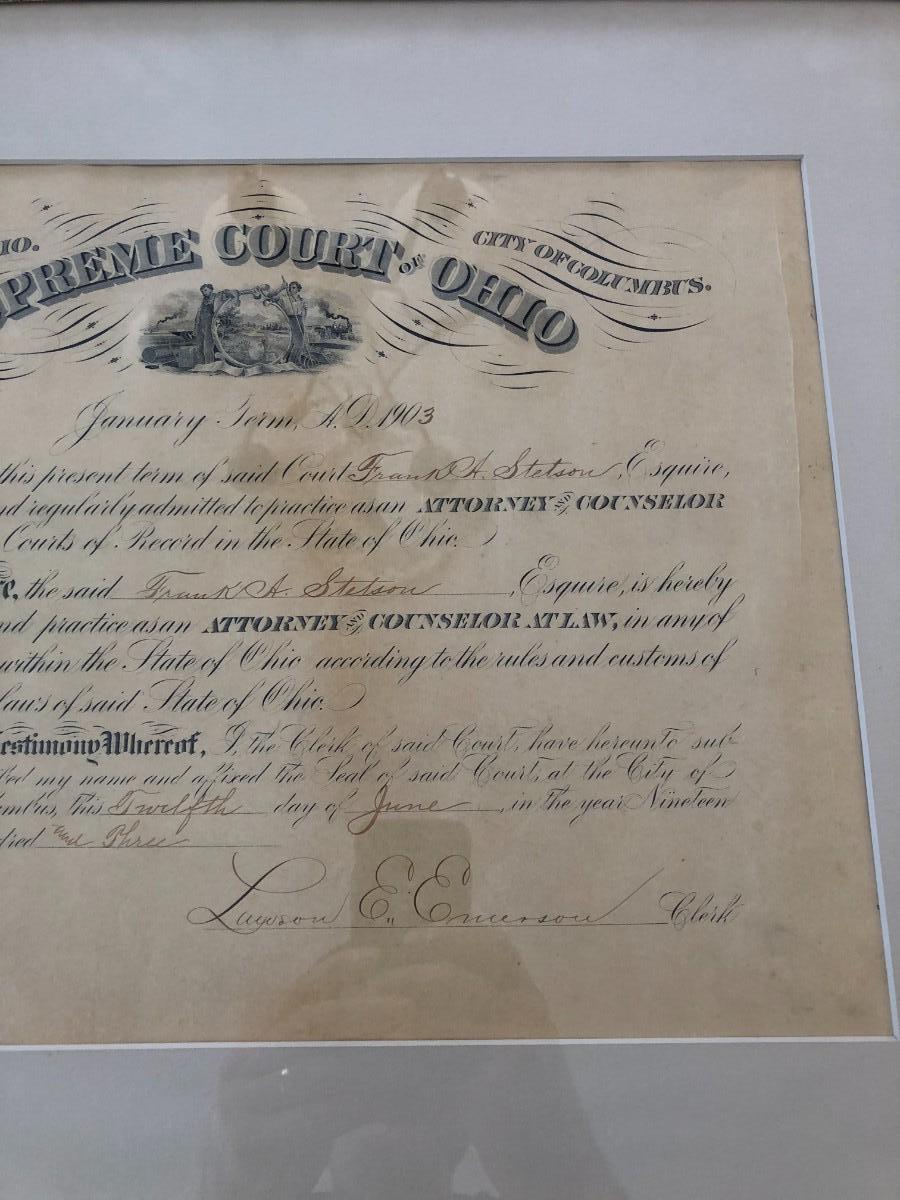 IO.
CITY OF COLUMBUS.
PREME COURT OF OHIO
January Term, A.D. 1903
this present term of said Court Frank A. Stetson, Esquire,
nd regularly admitted to practice as an ATTORNEY AND COUNSELOR
Courts of Record in the State of Ohio.
e, the said Frank A. Stetson, Esquire, is hereby
nd practice as an ATTORNEY AND COUNSELOR AT LAW, in any of
within the State of Ohio according to the rules and customs of
laws of said State of Ohio.
estimony Whereof, I, the Clerk of said Court, have hereunto sub-
bed my name and affixed the Seal of said Court, at the City of
umbus, this Twelfth day of June, in the year Nineteen
dred and Three
Lawson E. Emerson Clerk